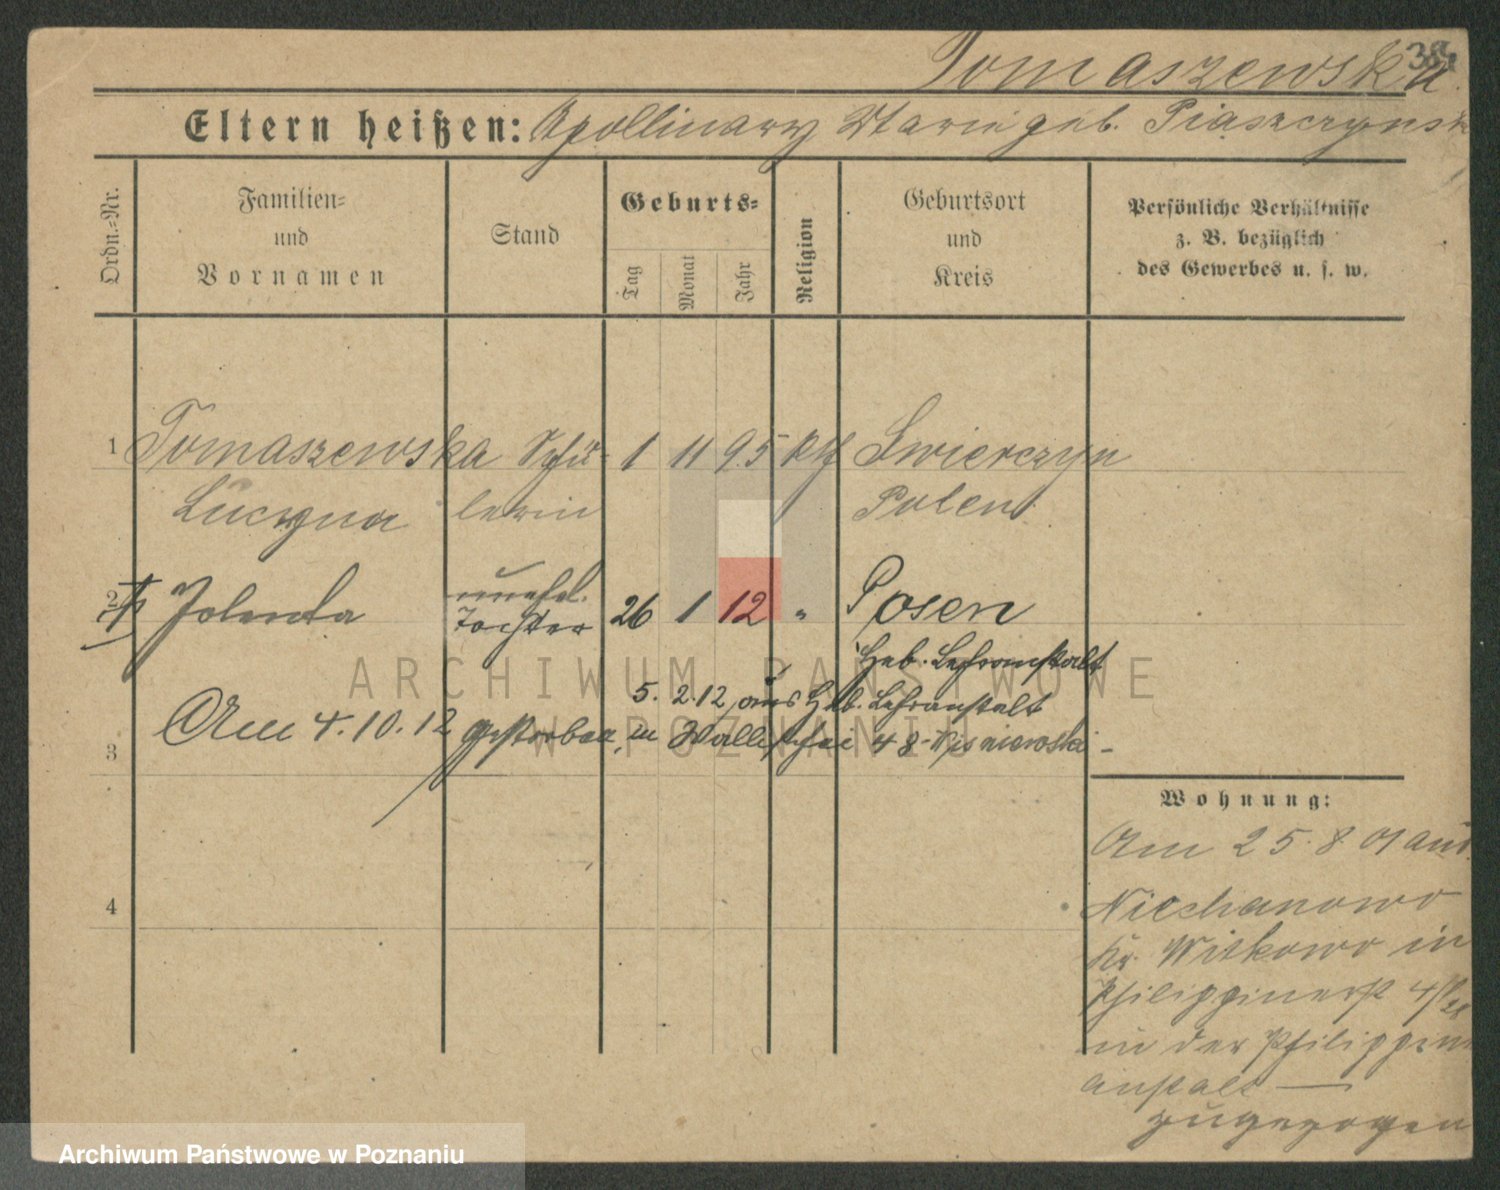 Tomaszewska
38
Eltern heißen: Apollinary Marie geb. Piaszczynsk
Ordn.-Nr.
Familien-
und
Vornamen
Stand
Geburts-
Tag
Monat
Jahr
Religion
Geburtsort
und
Kreis
Persönliche Verhältnisse
z. B. bezüglich
des Gewerbes u. s. w.
1 Tomaszewska Schü- 1 11 95 kth Swierczyn
Lucyna lerin Polen
2 Jolenta unehel. Tochter 26 1 12 " Posen
Heb. Lehranstalt
5. 2. 12 aus Heb. Lehranstalt
3 Am 4. 10. 12 gestorben, in Wallischei 48
4
Wohnung:
Am 25. 8. 01 aus
Niechanowo
Kr. Witkowo in
Philippinerst 4
in der Philippin
anstalt —
zugezogen
ARCHIWUM PAŃSTWOWE
W POZNANIU
Archiwum Państwowe w Poznaniu